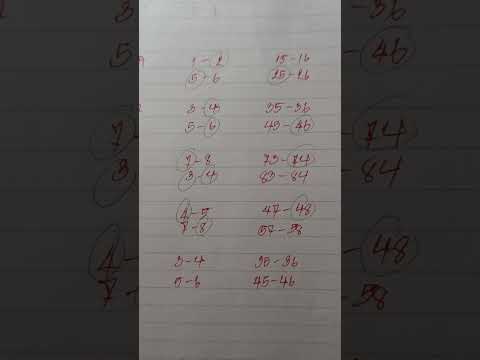 1-2 15-16
5-6 25-26
3-4 35-36
5-6 45-46
7-8 73-74
3-4 83-84
4-5 47-48
7-8 57-58
3-4 35-36
5-6 45-46